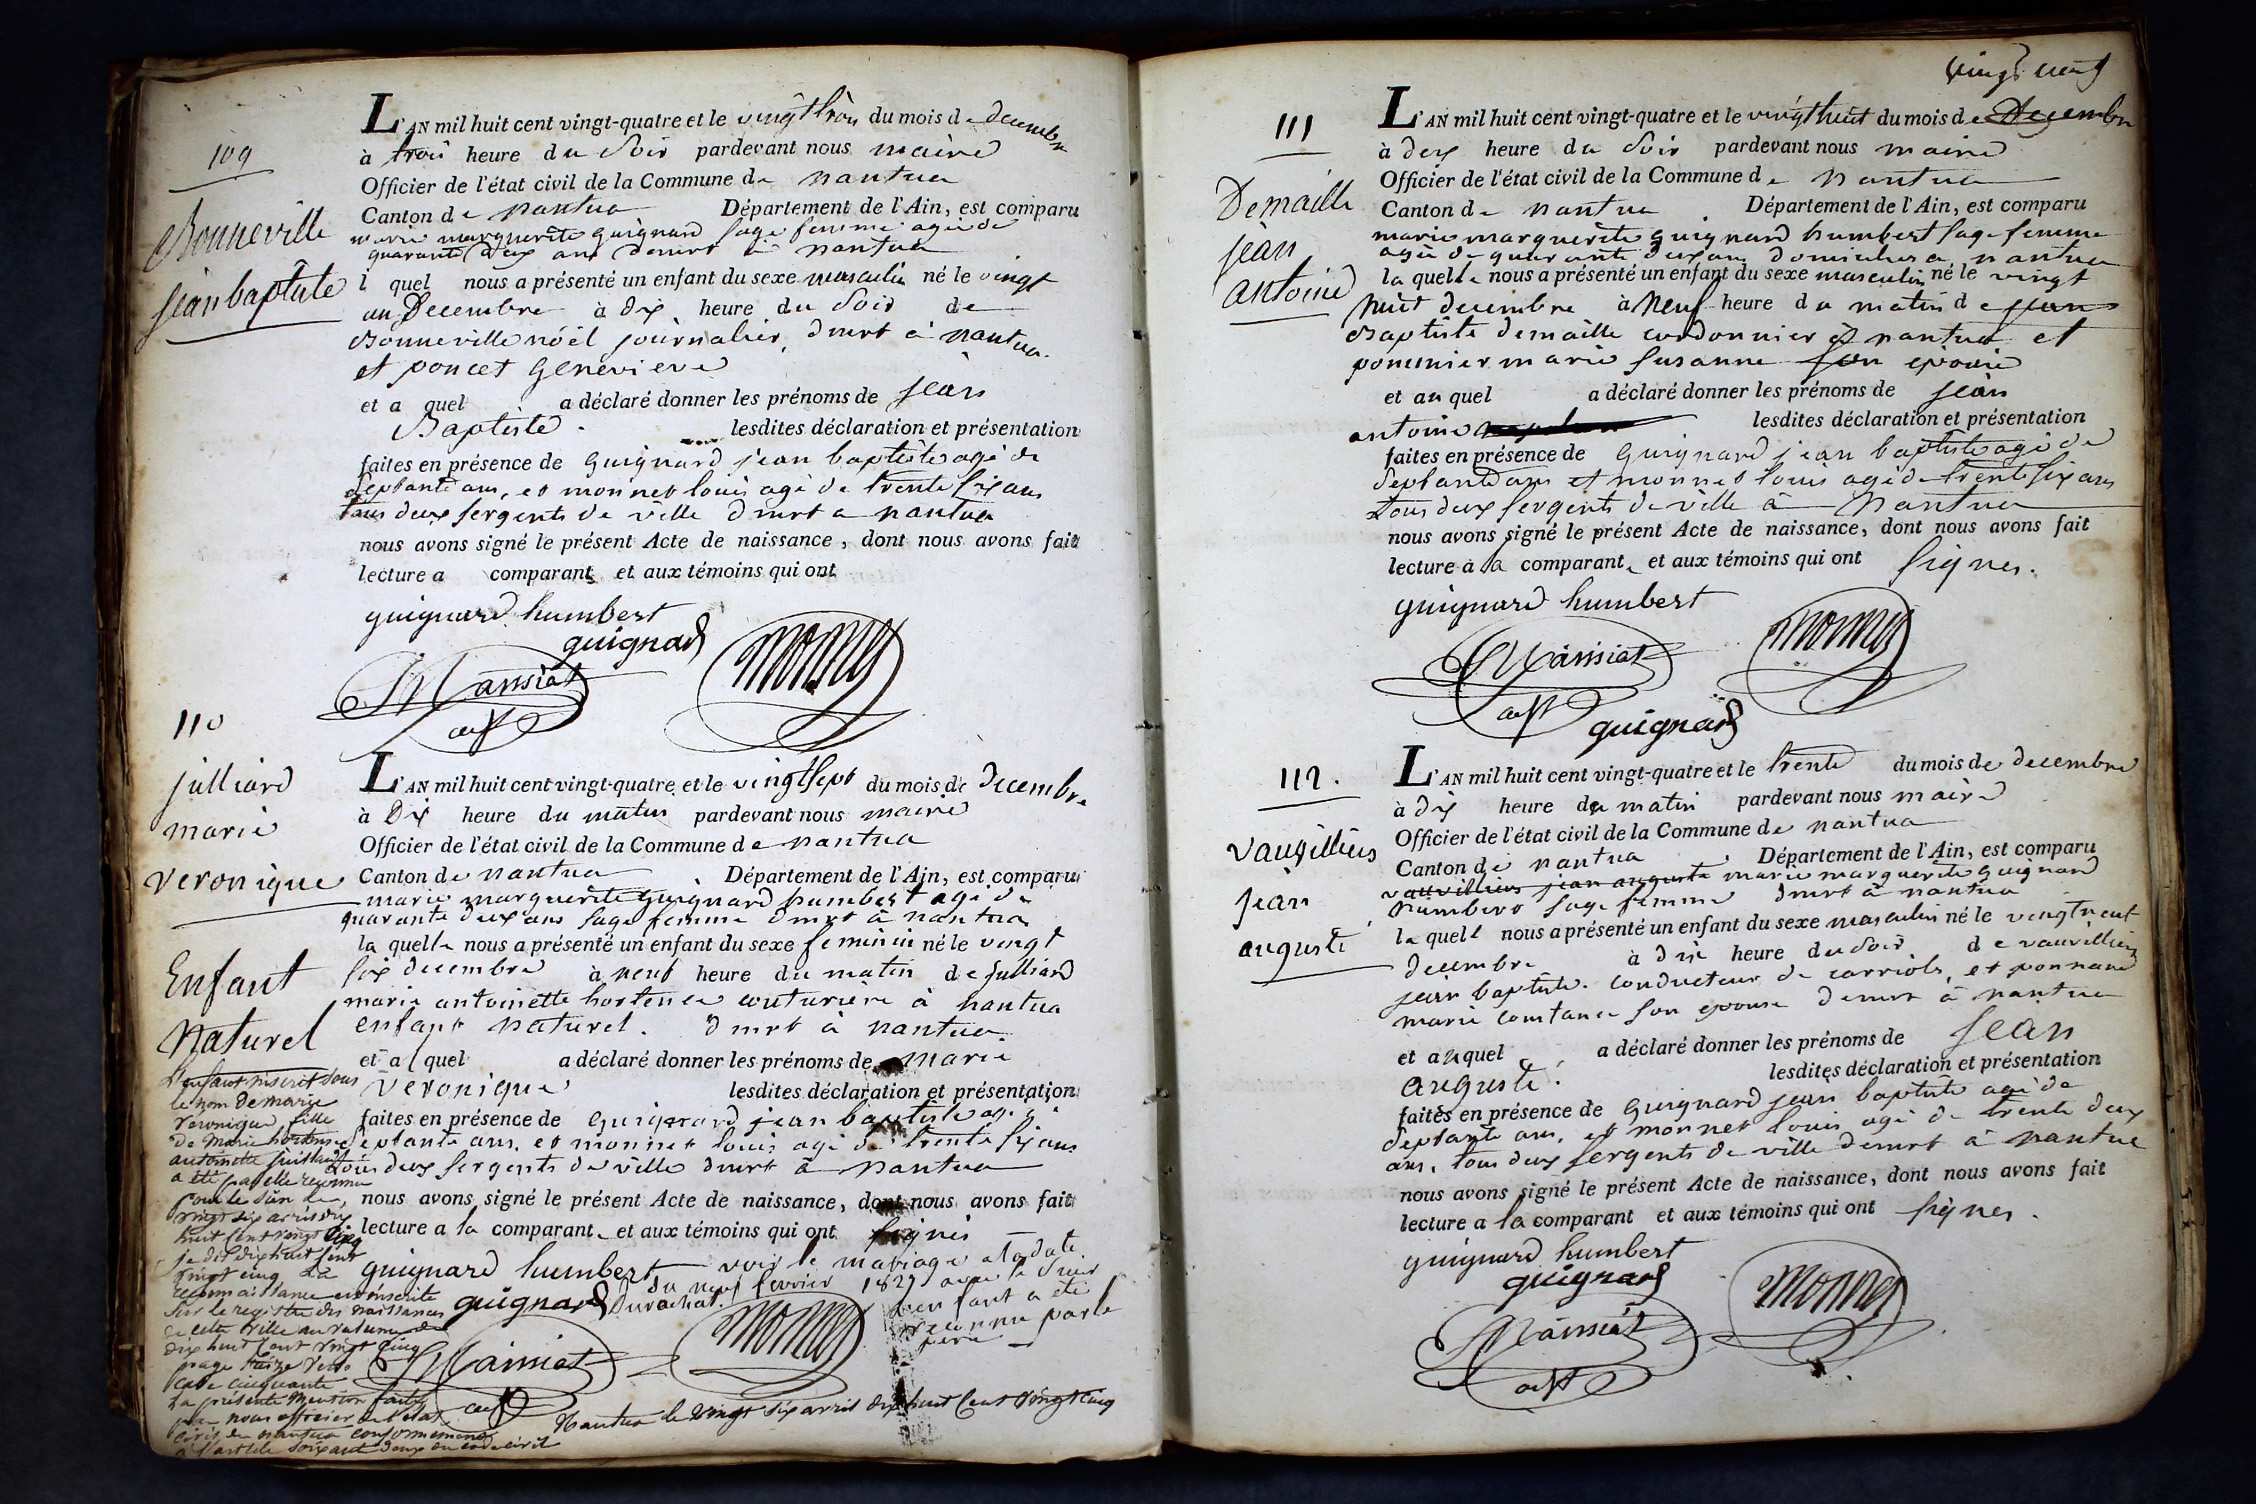 109
Bonneville
jean baptiste
L'AN mil huit cent vingt-quatre et le vingt trois du mois de decembre
à trois heure du Soir pardevant nous maire
Officier de l'état civil de la Commune de nantua
Canton de nantua Département de l'Ain, est comparu
marie marguerite guignard sage femme agée de
quarante deux ans demrt à nantua
l quel nous a présenté un enfant du sexe masculin né le vingt
un Decembre à dix heure du Soir de
Bonneville noël journalier, dmrt à nantua
et poncet Genevieve
et a quel a déclaré donner les prénoms de jean
Baptiste . lesdites déclaration et présentation
faites en présence de Guignard jean baptiste agé de
septante ans, et monnet louis agé de trente six ans
tous deux sergents de ville dmrt a nantua
nous avons signé le présent Acte de naissance, dont nous avons fait
lecture a comparant, et aux témoins qui ont
guignard humbert
guignard
Mansiat
monnet
adjt
110
julliard
marie
veronique
Enfant
Naturel
L'AN mil huit cent vingt-quatre et le vingt sept du mois de Decembre
à Dix heure du matin pardevant nous maire
Officier de l'état civil de la Commune de nantua
Canton de nantua Département de l'Ain, est comparu
marie marguerite Guignard humbert agé de
quarante deux ans sage femme dmrt à nantua
la quelle nous a présenté un enfant du sexe feminin né le vingt
six decembre à neuf heure du matin de julliard
marie antoinette hortense couturière à nantua
enfant naturel. dmrt à nantua
et a quel a déclaré donner les prénoms de marie
veronique lesdites déclaration et présentation
faites en présence de Guignard jean baptiste agé de
septante ans, et monnet louis agé de trente six ans
tous deux sergents de ville dmrt à nantua
nous avons signé le présent Acte de naissance, dont nous avons fait
lecture a la comparant, et aux témoins qui ont signés
guignard humbert
guignard
monnet
Mansiat
adjt
voir le mariage a la date
du neuf fevrier 1827 avec le sieur
Durochat. l'enfant a été
reconnu par le
père
L'enfant inscrit sous
le nom de marie
Veronique, fille
de Marie hortense
antoinette juilliard
a été par elle reconnu
vingt six avril dix
huit cent vingt cinq
je dis dix huit cent
vingt cinq. La
reconnaissance est inscrite
sur le registre des naissances
de cette ville au volume de
dix huit cent vingt cinq
page treize verso
cinquante
La présente mention faite
par nous officier de l'état
civil de nantua conformement
à l'article soixante deux du code civil
Nantua le vingt six avril dix huit cent vingt cinq
vingt neuf
111
Demaille
jean
antoine
L'AN mil huit cent vingt-quatre et le vingt huit du mois de Decembre
à deux heure du Soir pardevant nous maire
Officier de l'état civil de la Commune de nantua
Canton de nantua Département de l'Ain, est comparu
marie marguerite guignard humbert sage femme
agée de quarante deux ans domiciliée a nantua
la quelle nous a présenté un enfant du sexe masculin né le vingt
huit decembre à neuf heure du matin de jean
Baptiste demaille cordonnier à nantua et
pommier marie susanne son epouse
et au quel a déclaré donner les prénoms de jean
antoine lesdites déclaration et présentation
faites en présence de Guignard jean baptiste agé de
septante ans et monnet louis agé de trente six ans
tous deux sergents de ville à Nantua
nous avons signé le présent Acte de naissance, dont nous avons fait
lecture à la comparant, et aux témoins qui ont signés.
guignard humbert
Mansiat
monnet
adjt
guignard
112.
Vauvilliers
jean
auguste
L'AN mil huit cent vingt-quatre et le trente du mois de decembre
à dix heure du matin pardevant nous maire
Officier de l'état civil de la Commune de nantua
Canton de nantua Département de l'Ain, est comparu
vauvilliers jean auguste marie marguerite guignard
humbert sage femme dmrt à nantua
la quelle nous a présenté un enfant du sexe masculin né le vingt neuf
decembre à dix heure du soir de vauvilliers
jean baptiste. conducteur de carriole, et
marie constance son epouse demrt à nantua
et au quel a déclaré donner les prénoms de jean
auguste. lesdites déclaration et présentation
faites en présence de Guignard jean baptiste agé de
septante ans, et monnet louis agé de trente deux
ans, tous deux sergents de ville demrt à nantua
nous avons signé le présent Acte de naissance, dont nous avons fait
lecture a la comparant et aux témoins qui ont signés.
guignard humbert
guignard
monnet
Mansiat
adjt